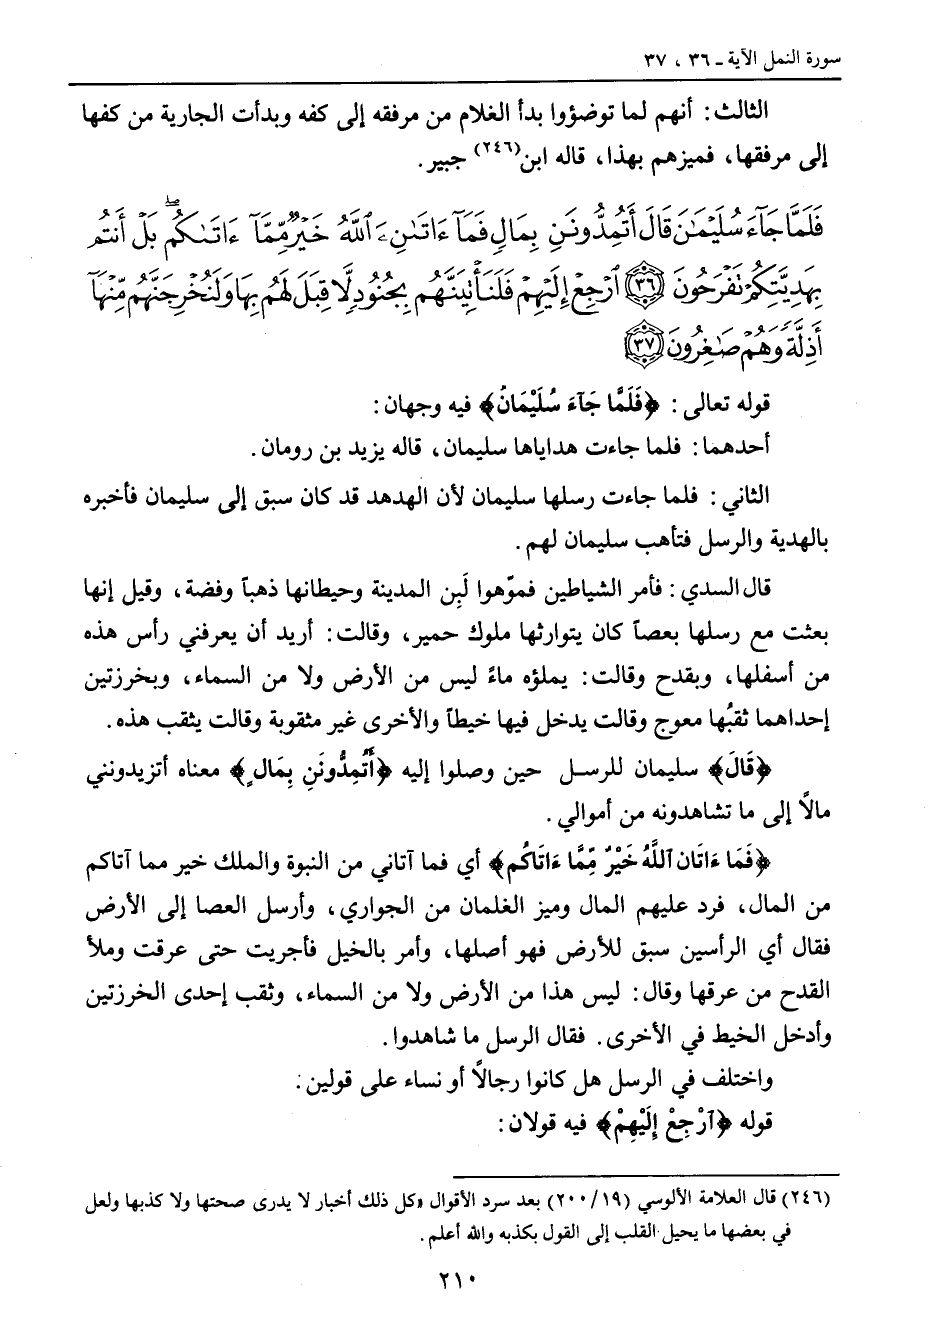 سورة النمل الآية ـ ٣٦ ، ٣٧
الثالث: أنهم لما توضؤوا بدأ الغلام من مرفقه إلى كفه وبدأت الجارية من كفها
إلى مرفقها، فميزهم بهذا، قاله ابن(٢٤٦) جبير.
فَلَمَّا جَآءَ سُلَيْمَـٰنَ قَالَ أَتُمِدُّونَنِ بِمَالٍ فَمَآ ءَاتَىٰنِۦَ ٱللَّهُ خَيْرٌ مِّمَّآ ءَاتَىٰكُمۖ بَلْ أَنتُم
بِهَدِيَّتِكُمْ تَفْرَحُونَ ﴿٣٦﴾ ٱرْجِعْ إِلَيْهِمْ فَلَنَأْتِيَنَّهُم بِجُنُودٍ لَّا قِبَلَ لَهُم بِهَا وَلَنُخْرِجَنَّهُم مِّنْهَآ
أَذِلَّةً وَهُمْ صَـٰغِرُونَ ﴿٣٧﴾
قوله تعالى: ﴿فَلَمَّا جَآءَ سُلَيْمَانُ﴾ فيه وجهان:
أحدهما: فلما جاءت هداياها سليمان، قاله يزيد بن رومان.
الثاني: فلما جاءت رسلها سليمان لأن الهدهد قد كان سبق إلى سليمان فأخبره
بالهدية والرسل فتأهب سليمان لهم.
قال السدي: فأمر الشياطين فموّهوا لَبِن المدينة وحيطانها ذهباً وفضة، وقيل إنها
بعثت مع رسلها بعصاً كان يتوارثها ملوك حمير، وقالت: أريد أن يعرفني رأس هذه
من أسفلها، وبقدح وقالت: يملؤه ماءً ليس من الأرض ولا من السماء، وبخرزتين
إحداهما ثقبُها معوج وقالت يدخل فيها خيطاً والأخرى غير مثقوبة وقالت يثقب هذه.
﴿قَالَ﴾ سليمان للرسل حين وصلوا إليه ﴿أَتُمِدُّونَنِ بِمَالٍ﴾ معناه أتزيدونني
مالاً إلى ما تشاهدونه من أموالي.
﴿فَمَا ءَاتَان ٱللَّهُ خَيْرٌ مِّمَّا ءَاتَاكُم﴾ أي فما آتاني من النبوة والملك خير مما آتاكم
من المال، فرد عليهم المال وميز الغلمان من الجواري، وأرسل العصا إلى الأرض
فقال أي الرأسين سبق للأرض فهو أصلها، وأمر بالخيل فأجريت حتى عرقت وملأ
القدح من عرقها وقال: ليس هذا من الأرض ولا من السماء، وثقب إحدى الخرزتين
وأدخل الخيط في الأخرى. فقال الرسل ما شاهدوا.
واختلف في الرسل هل كانوا رجالاً أو نساء على قولين:
قوله ﴿ٱرْجِعْ إِلَيْهِمْ﴾ فيه قولان:
(٢٤٦) قال العلامة الألوسي (٢٠٠/١٩) بعد سرد الأقوال «كل ذلك أخبار لا يدرى صحتها ولا كذبها ولعل
في بعضها ما يحيل القلب إلى القول بكذبه والله أعلم.
٢١٠